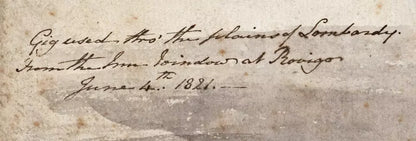 Gig used thro' the plains of Lombardy.
From the Inn Window at Rovigo
June 4.th 1821.—